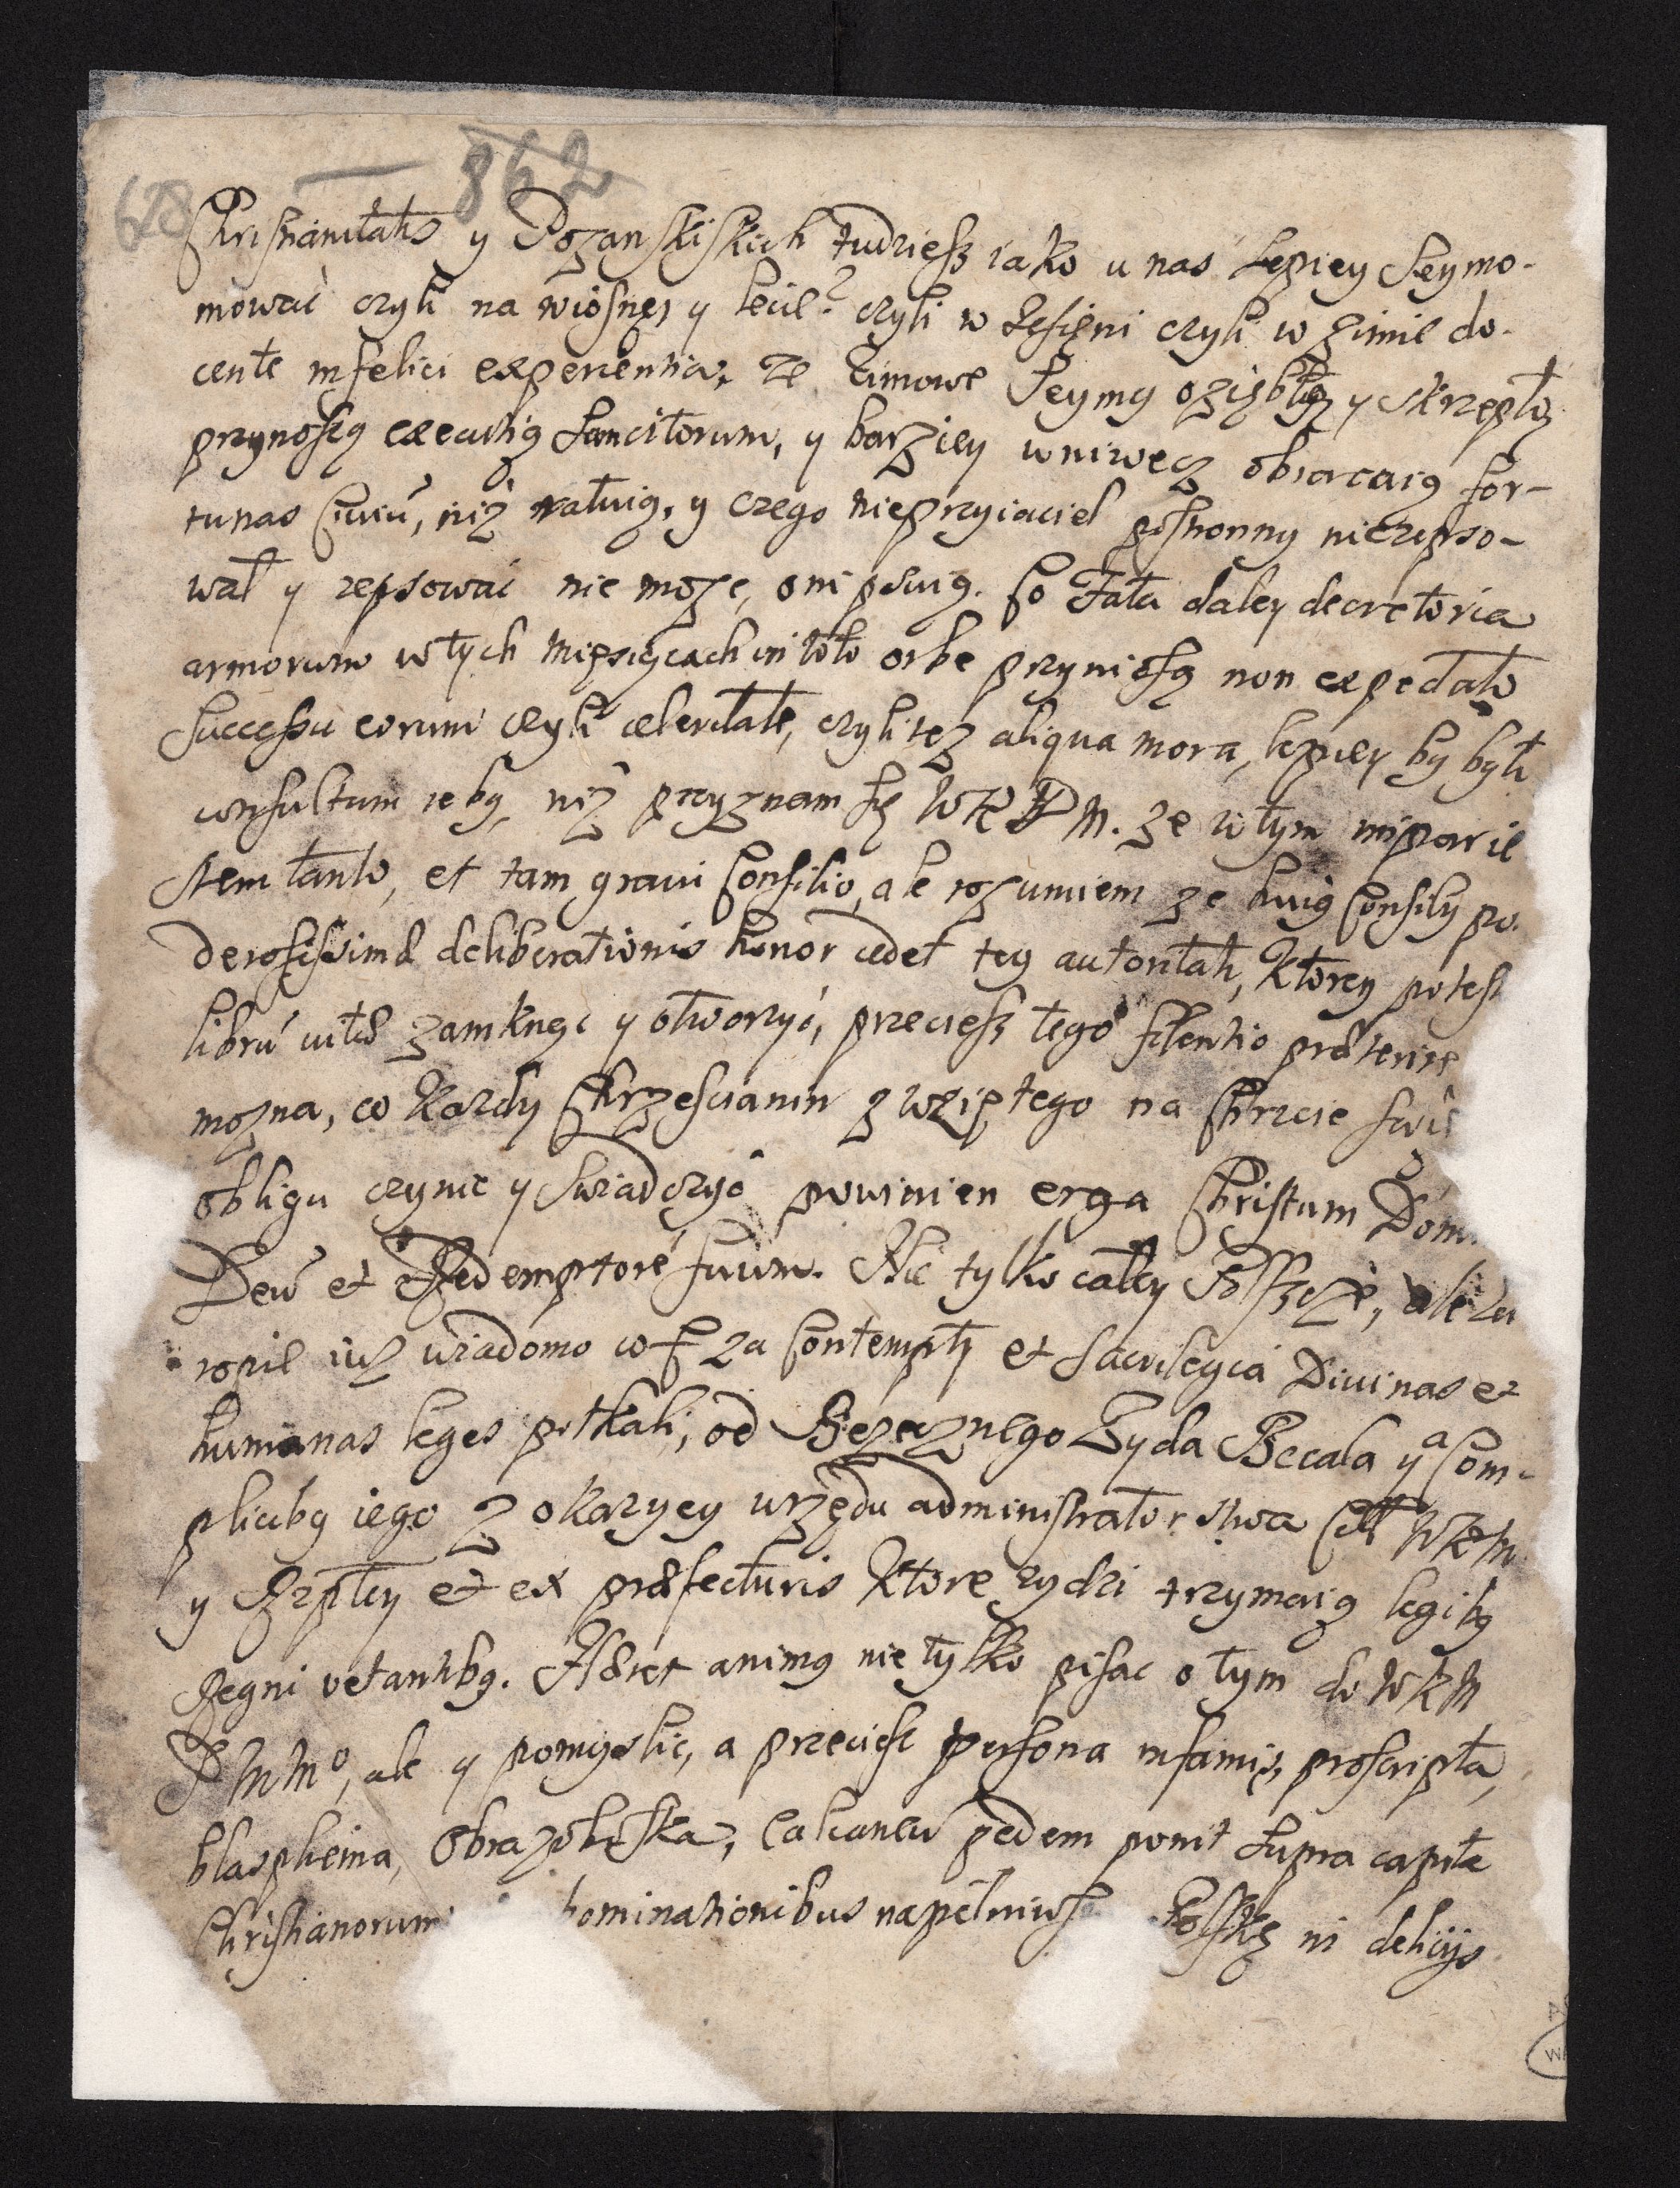 862
628
Christianitatis y Pozanskiskich tudziesz iako u nas Lepiey Seymo-
mowac czyli na wiosnę y lecie? czyli w Jesięni czyli w zimie do-
cente infelici experientia, ze Zimowe Seymy oziębłą y skrzepłą
przynoszą executią Sancitorum, y barziey wniwecz obracaią for-
tunas Ciuiu, niż ratuią, y czego nieprzyiaciel postronny niezepso-
wał y zepsować nie może, oni psuią. Co Fata daley decretoria
armorum w tych Miesiącach in toto orbe przyniosą non expectato
Successu eorum czyli celeritate, czyli tez aliqua mora, lepiey by było
consultum reby, niż przyznam się WKPM. ze w tym imparile
stem tanto, et tam graui Consilio, ale rozumiem ze huiq Consily po.
derosissimae deliberationis honor cedet tey autoritati, Ktorey potest
librū vitae zamknąc y otworzyć, przeciesz tego silentio praeterire
mozna, co Kazdy Chrzescianin z wziętego na Chrzcie swię
obligu czynic y swiadczyć powinien erga Christum Dom.
Deū et Redemptorē suum. Nie tylko całey Polszcze, ale Eu
ropie iuz wiadomo co s za Contempty et Sacrilegia Diuinas et
humanas leges potkali, od Bezecznego Zyda Becala y a Com-
plicibq iego z okazyey urzędu administratorstwa Cell WKM
y Rzptey et ex praefecturis Ktore zydzi trzymaią legibq
Regni vetantibq. Horret animq nie tylko pisac o tym do WKM
PMMo, ale y pomyslic, a przeciesz persona infamis, proscripta,
blasphema, Obrazoburska, calcaneū pedem ponit supra capita
Christianorum hominationibus napełniws Polskę in delicijs